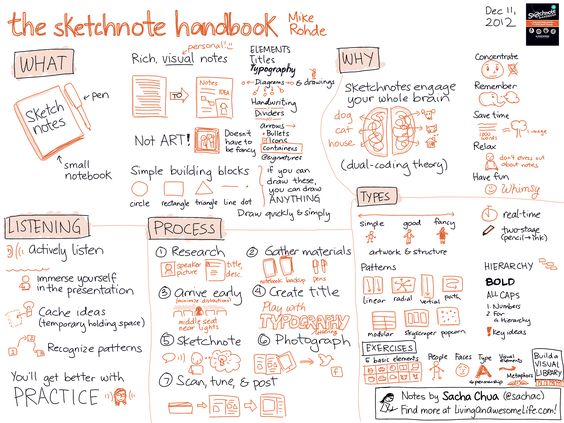 the sketchnote handbook
Mike
Rohde
Dec 11,
2012
Sketchnote
WHAT
sketch
notes
pen
small
notebook
personal!
Rich, visual notes
TO
Notes
IDEA
Not ART!
Doesn't
have to
be fancy
Simple building blocks
circle
rectangle
triangle
line
dot
if you can
draw these,
you can draw
ANYTHING
Draw quickly & simply
ELEMENTS
Titles
Typography
Diagrams & drawings
Handwriting
Dividers
arrows
Bullets
Icons
containers
signatures
WHY
Sketchnotes engage
your whole brain
dog
cat
house
(dual-coding theory)
Concentrate
Remember
Save time
1000
words
image
Relax
don't stress out
about notes
Have fun
Whimsy
LISTENING
Actively listen
Immerse yourself
in the presentation
Cache ideas
(temporary holding space)
Recognize patterns
You'll get better with
PRACTICE
PROCESS
1 Research
speaker
picture
title,
desc.
2 Gather materials
notebook
backup
pens
3 Arrive early
(minimize distractions)
middle seat
near lights
4 Create title
Play with
TYPOGRAPHY
5 Sketchnote
6 Photograph
7 Scan, tune, & post
TYPES
simple
good
fancy
artwork & structure
real-time
two-stage
(pencil→ink)
Patterns
linear
radial
vertical
path
modular
skyscraper
popcorn
HIERARCHY
BOLD
ALL CAPS
1. Numbers
2. For
a Hierarchy
! Key ideas
EXERCISES
5 basic elements
People
Faces
Type
& penmanship
Visual
elements
Metaphors
Build a
VISUAL
LIBRARY
Notes by Sacha Chua (@sachac)
Find more at LivingAnAwesomeLife.com!